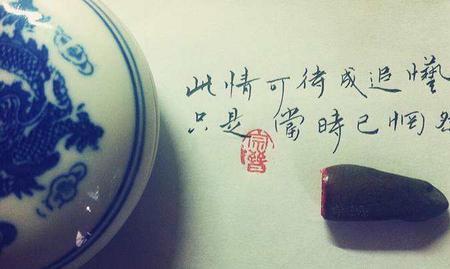 此情可待成追
只是當時已惘